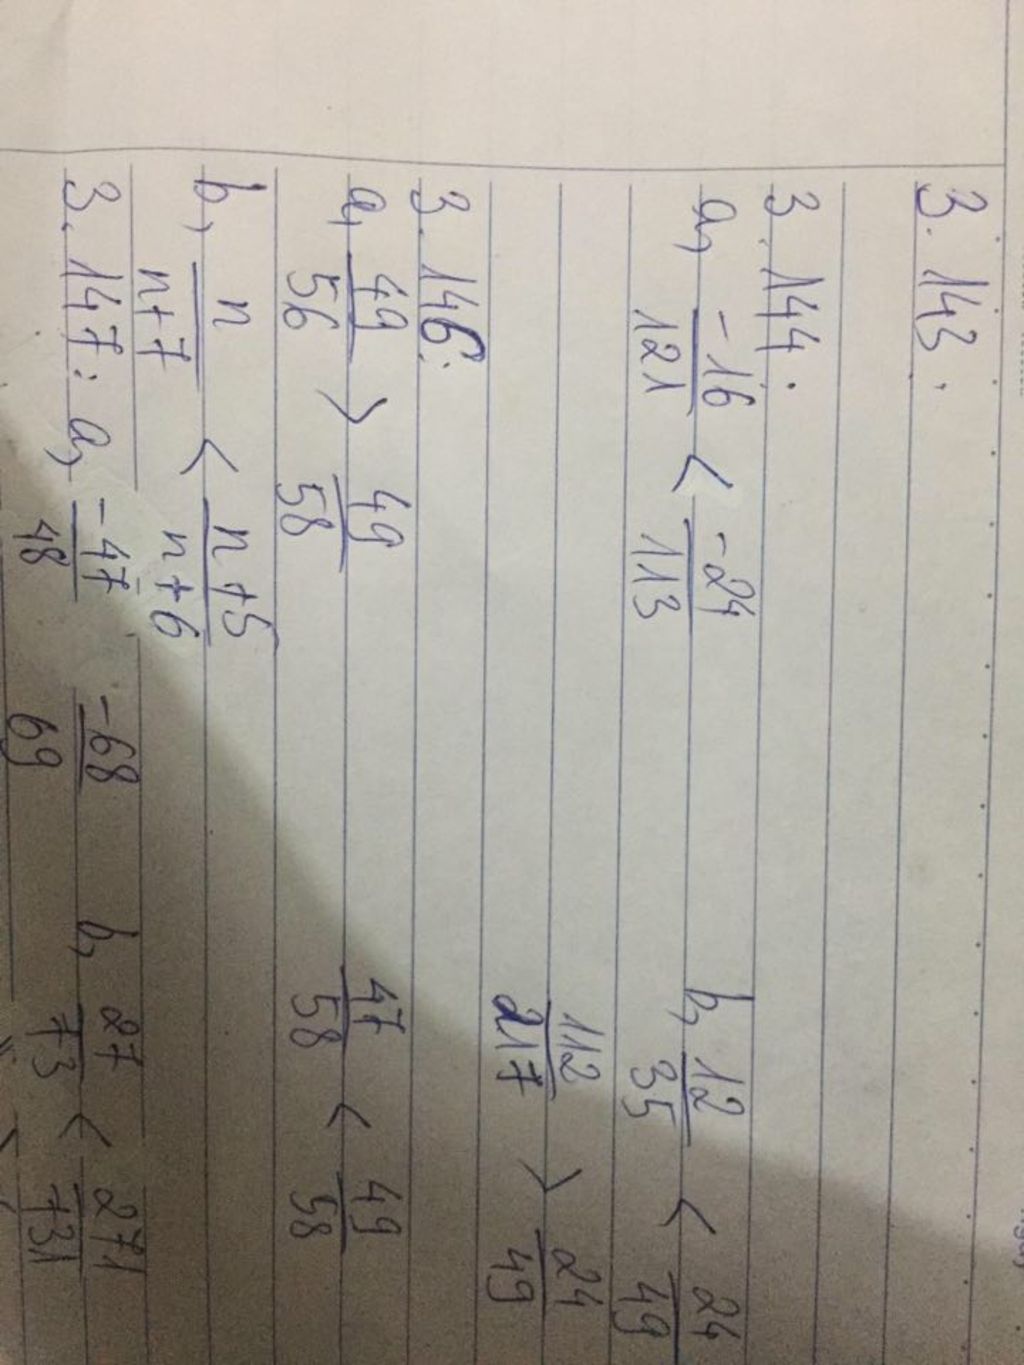 3. 143.
3. 144.
a, -16/121 < -24/113 b, 12/35 < 24/49
112/217 > 24/49
3. 146:
a, 49/56 > 49/58 47/58 < 49/58
b, n/n+7 < n+5/n+6
3. 147: a, -47/48 -68/69 b, 27/73 < 271/731